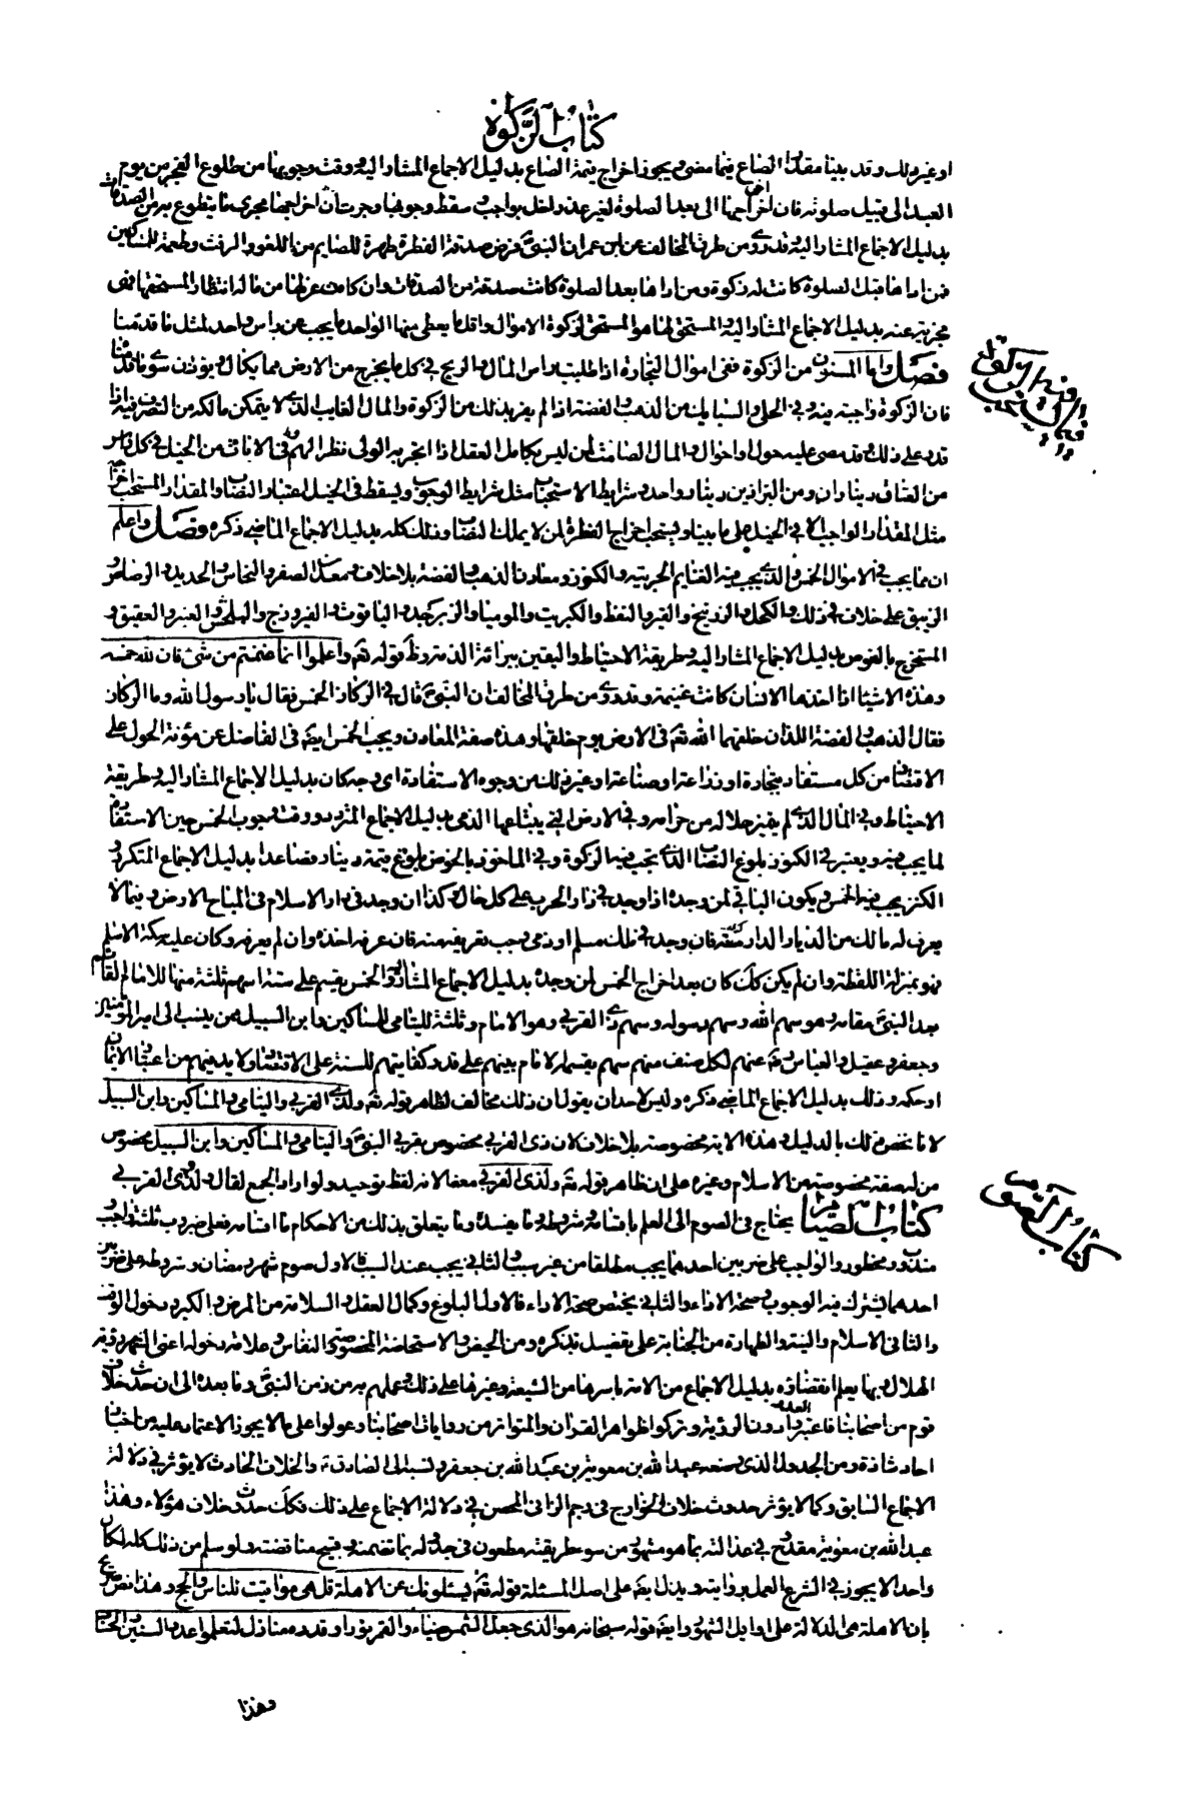 كتاب الزكوة
او غير ذلك وقد بينا مقدار الصاع فيما مضى ويجوز اخراج قيمة الصاع بدليل الاجماع المشار اليه ووقت وجوبها من طلوع الفجر من يوم
العيد الى قبيل صلوته فان اخر اخراجها الى بعد الصلوة لغير عذر اخل بواجب وسقط وجوبها وجرت ان اخرجها مجرى ما يتطوع به من الصدقات
بدليل الاجماع المشار اليه وقد روى من طرق المخالف عن ابن عمر ان النبي فرض صدقة الفطرة طهرة للصايم من اللغو والرفث وطعمة للمساكين
فمن اداها قبل الصلوة كانت له زكوة ومن اداها بعد الصلوة كانت صدقة من الصدقات وان كانت عزلها من ماله انتظارا لمستحقها فهى
مجزية عنه بدليل الاجماع المشار اليه والمستحق لها هو المستحق لزكوة الاموال واقل ما يعطى منها الواحد ما يجب عن راس واحد لمثل ما قدمنا
فصل واما المسنون من الزكوة ففى اموال التجارة اذا طلبت براس المال او الربح وفى كل ما يخرج من الارض مما يكال او يوزن سوى ما قدمنا
فان الزكوة واجبة فيه وفى الحلى والسبايك من الذهب والفضة اذا لم يفر بذلك من الزكوة والمال الغايب الذى لا يتمكن مالكه من التصرف فيه اذا
قدر على ذلك وقد مضى عليه حول او احوال وفى المال الصامت لمن ليس بكامل العقل اذا اتجر به الولى نظرا لهم وفى الاناث من الخيل فى كل راس
من العتاق ديناران ومن البراذين دينار واحد وشرايط الاستحباب مثل شرايط الوجوب ويسقط فى الخيل اعتبار النصاب والمقدار المستحب اخراجه
مثل المقدار الواجب الا فى الخيل على ما بيناه ويستحب اخراج الفطرة لمن لا يملك النصاب وذلك كله بدليل الاجماع الماضى ذكره فصل واعلم
ان مما يجب فى الاموال الخمس والذى يجب فيه الغنايم الحربية والكنوز ومعادن الذهب والفضة بلا خلاف ومعدن الصفر والنحاس والحديد والرصاص و
الزيبق على خلاف فى ذلك والكحل والزرنيخ والقير والنفط والكبريت والموميا والزبرجد والياقوت والفيروزج والبلخش والعنبر والعقيق و
المستخرج بالغوص بدليل الاجماع المشار اليه وطريقة الاحتياط واليقين ببرائة الذمة وظ قوله تع واعلموا انما غنمتم من شىء فان لله خمسه
وهذه الاشياء اذا اخذها الانسان كانت غنيمة وقد روى من طرق المخالف ان النبي قال فى الركاز الخمس فقال يا رسول الله وما الركاز
فقال الذهب والفضة اللذان خلقهما الله تع فى الارض يوم خلقها وهذه صفة المعادن ويجب الخمس ايضا فى الفاضل عن مؤنة الحول على
الاقتصاد من كل مستفاد بتجارة او زراعة او صناعة او غير ذلك من وجوه الاستفادة اى وجه كان بدليل الاجماع المشار اليه وطريقة
الاحتياط وفى المال الذى لم يتميز حلاله من حرامه وفى الارض التى يبتاعها الذمى بدليل الاجماع المتردد ووقت وجوب الخمس حين الاستفادة
لما يجب فيه ويعتبر فى الكنوز بلوغ النصاب الذى تجب فيه الزكوة وفى الماخوذ بالغوص بلوغ قيمة دينار فصاعدا بدليل الاجماع المتكرر و
الكنز يجب فيه الخمس ويكون الباقى لمن وجده اذا وجد فى دار الحرب على كل حال وكذا ان وجد فى دار الاسلام فى المباح من الارض وفيما لا
يعرف له مالك من الديار الدارسة فان وجد فى ملك مسلم او ذمى وجب تعريفه منه فان عرفه اخذه وان لم يعرفه وكان عليه سكة الاسلام
فهو بمنزلة اللقطة وان لم يكن كك كان بعد اخراج الخمس لمن وجده بدليل الاجماع المشار اليه والخمس يقسم على ستة اسهم ثلثة منها للامام القائم
بعد النبي مقامه وهو سهم الله وسهم رسوله وسهم ذى القربى وهو الامام وثلثة لليتامى والمساكين وابن السبيل ممن ينسب الى امير المؤمنين
وجعفر وعقيل والعباس رض عنهم لكل صنف منهم سهم يقسمه الامام بينهم على قدر كفايتهم للسنة على الاقتصاد ولا بد فيهم من اعتبار الايمان
او حكمه وذلك بدليل الاجماع الماضى ذكره وليس لاحد ان يقول ان ذلك مخالف لظاهر قوله تع ولذى القربى واليتامى والمساكين وابن السبيل
لانا نخص ذلك بالدليل وهذه الاية مخصوصة بلا خلاف لان ذى القربى مخصوص بقربى النبي واليتامى والمساكين وابن السبيل مخصوص
من له صفة مخصوصة من الاسلام وغيره على ان ظاهر قوله تع ولذى القربى معنا لانه لفظ توحيد ولو اراد الجمع لقال ولذوى القربى
كتاب الصيام يحتاج فى الصوم الى العلم باقسامه وشروطه وما يفسده وما يتعلق بذلك من الاحكام اما اقسامه فعلى ضروب ثلثة واجب
مندوب ومحظور والواجب على ضربين احدهما يجب مطلقا من غير سبب والثانى يجب عند السبب فالاول صوم شهر رمضان وشروطه على ضربين
احدهما يشترك فيه الوجوب وصحة الاداء والثانى يختص صحة الاداء فالاول البلوغ وكمال العقل والسلامة من المرض والكبر ودخول الوقت
والثانى الاسلام والنية والطهارة من الجنابة على تفصيل نذكره ومن الحيض والاستحاضة المخصوصة والنفاس وعلامة دخوله اعنى الشهر رؤية
الهلال وبها يعلم انقضاؤه بدليل الاجماع من الامة باسرها من الشيعة وغيرها على ذلك وعملهم به من زمن النبي وما بعده الى ان حدث خلاف
قوم من اصحابنا فاعتبروا العدد دون الرؤية وتركوا ظواهر القران والمتواتر من روايات اصحابنا وعولوا على ما لا يجوز الاعتماد عليه من اخبار
احاد شاذة ومن الجدول الذى وضعه عبد الله بن معوية بن عبد الله بن جعفر ونسبه الى الصادق ع والخلاف الحادث لا يؤثر فى دلالة
الاجماع السابق وكما لا يؤثر حدوث خلاف الخوارج فى رجم الزانى المحصن فى دلالة الاجماع على ذلك فكك حدوث خلاف هؤلاء وهذا
عبد الله بن معوية مقدوح فى عدالته بما هو مشهور من سوء طريقته مطعون فى جدوله بما تضمنه من قبيح مناقضته ولو سلم من ذلك كله لكان
واحدا لا يجوز فى الشرع العمل بروايته ويدل ايضا على اصل المسئلة قوله تع يسئلونك عن الاهلة قل هى مواقيت للناس والحج وهذا نص صريح
بان الاهلة هى الدلالة على اوايل الشهور وايضا قوله سبحانه هو الذى جعل الشمس ضياء والقمر نورا وقدره منازل لتعلموا عدد السنين والحساب
وهذا
كتاب الصوم